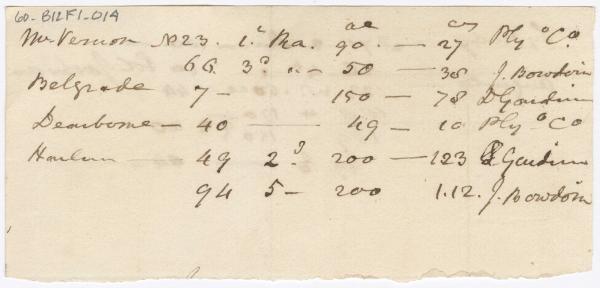 60-B12F1-014
ac cts
Mt Vernon No 23. 1st Ra. 90 — 27 Ply o Co
66. 3d " — 50 — 38 J. Bowdoin
Belgrade 7 — 150 — 78 D Gardiner
Dearborne — 40 — 49 — 10 Ply o Co
Harlem 49 2d 200 — 123 Gardiner
94 5 — 200 1.12. J. Bowdoin